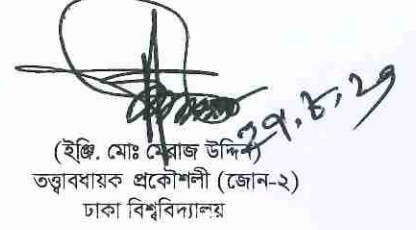 ২৭.৮.২৩
(ইঞ্জি. মোঃ মেরাজ উদ্দিন)
তত্ত্বাবধায়ক প্রকৌশলী (জোন-২)
ঢাকা বিশ্ববিদ্যালয়